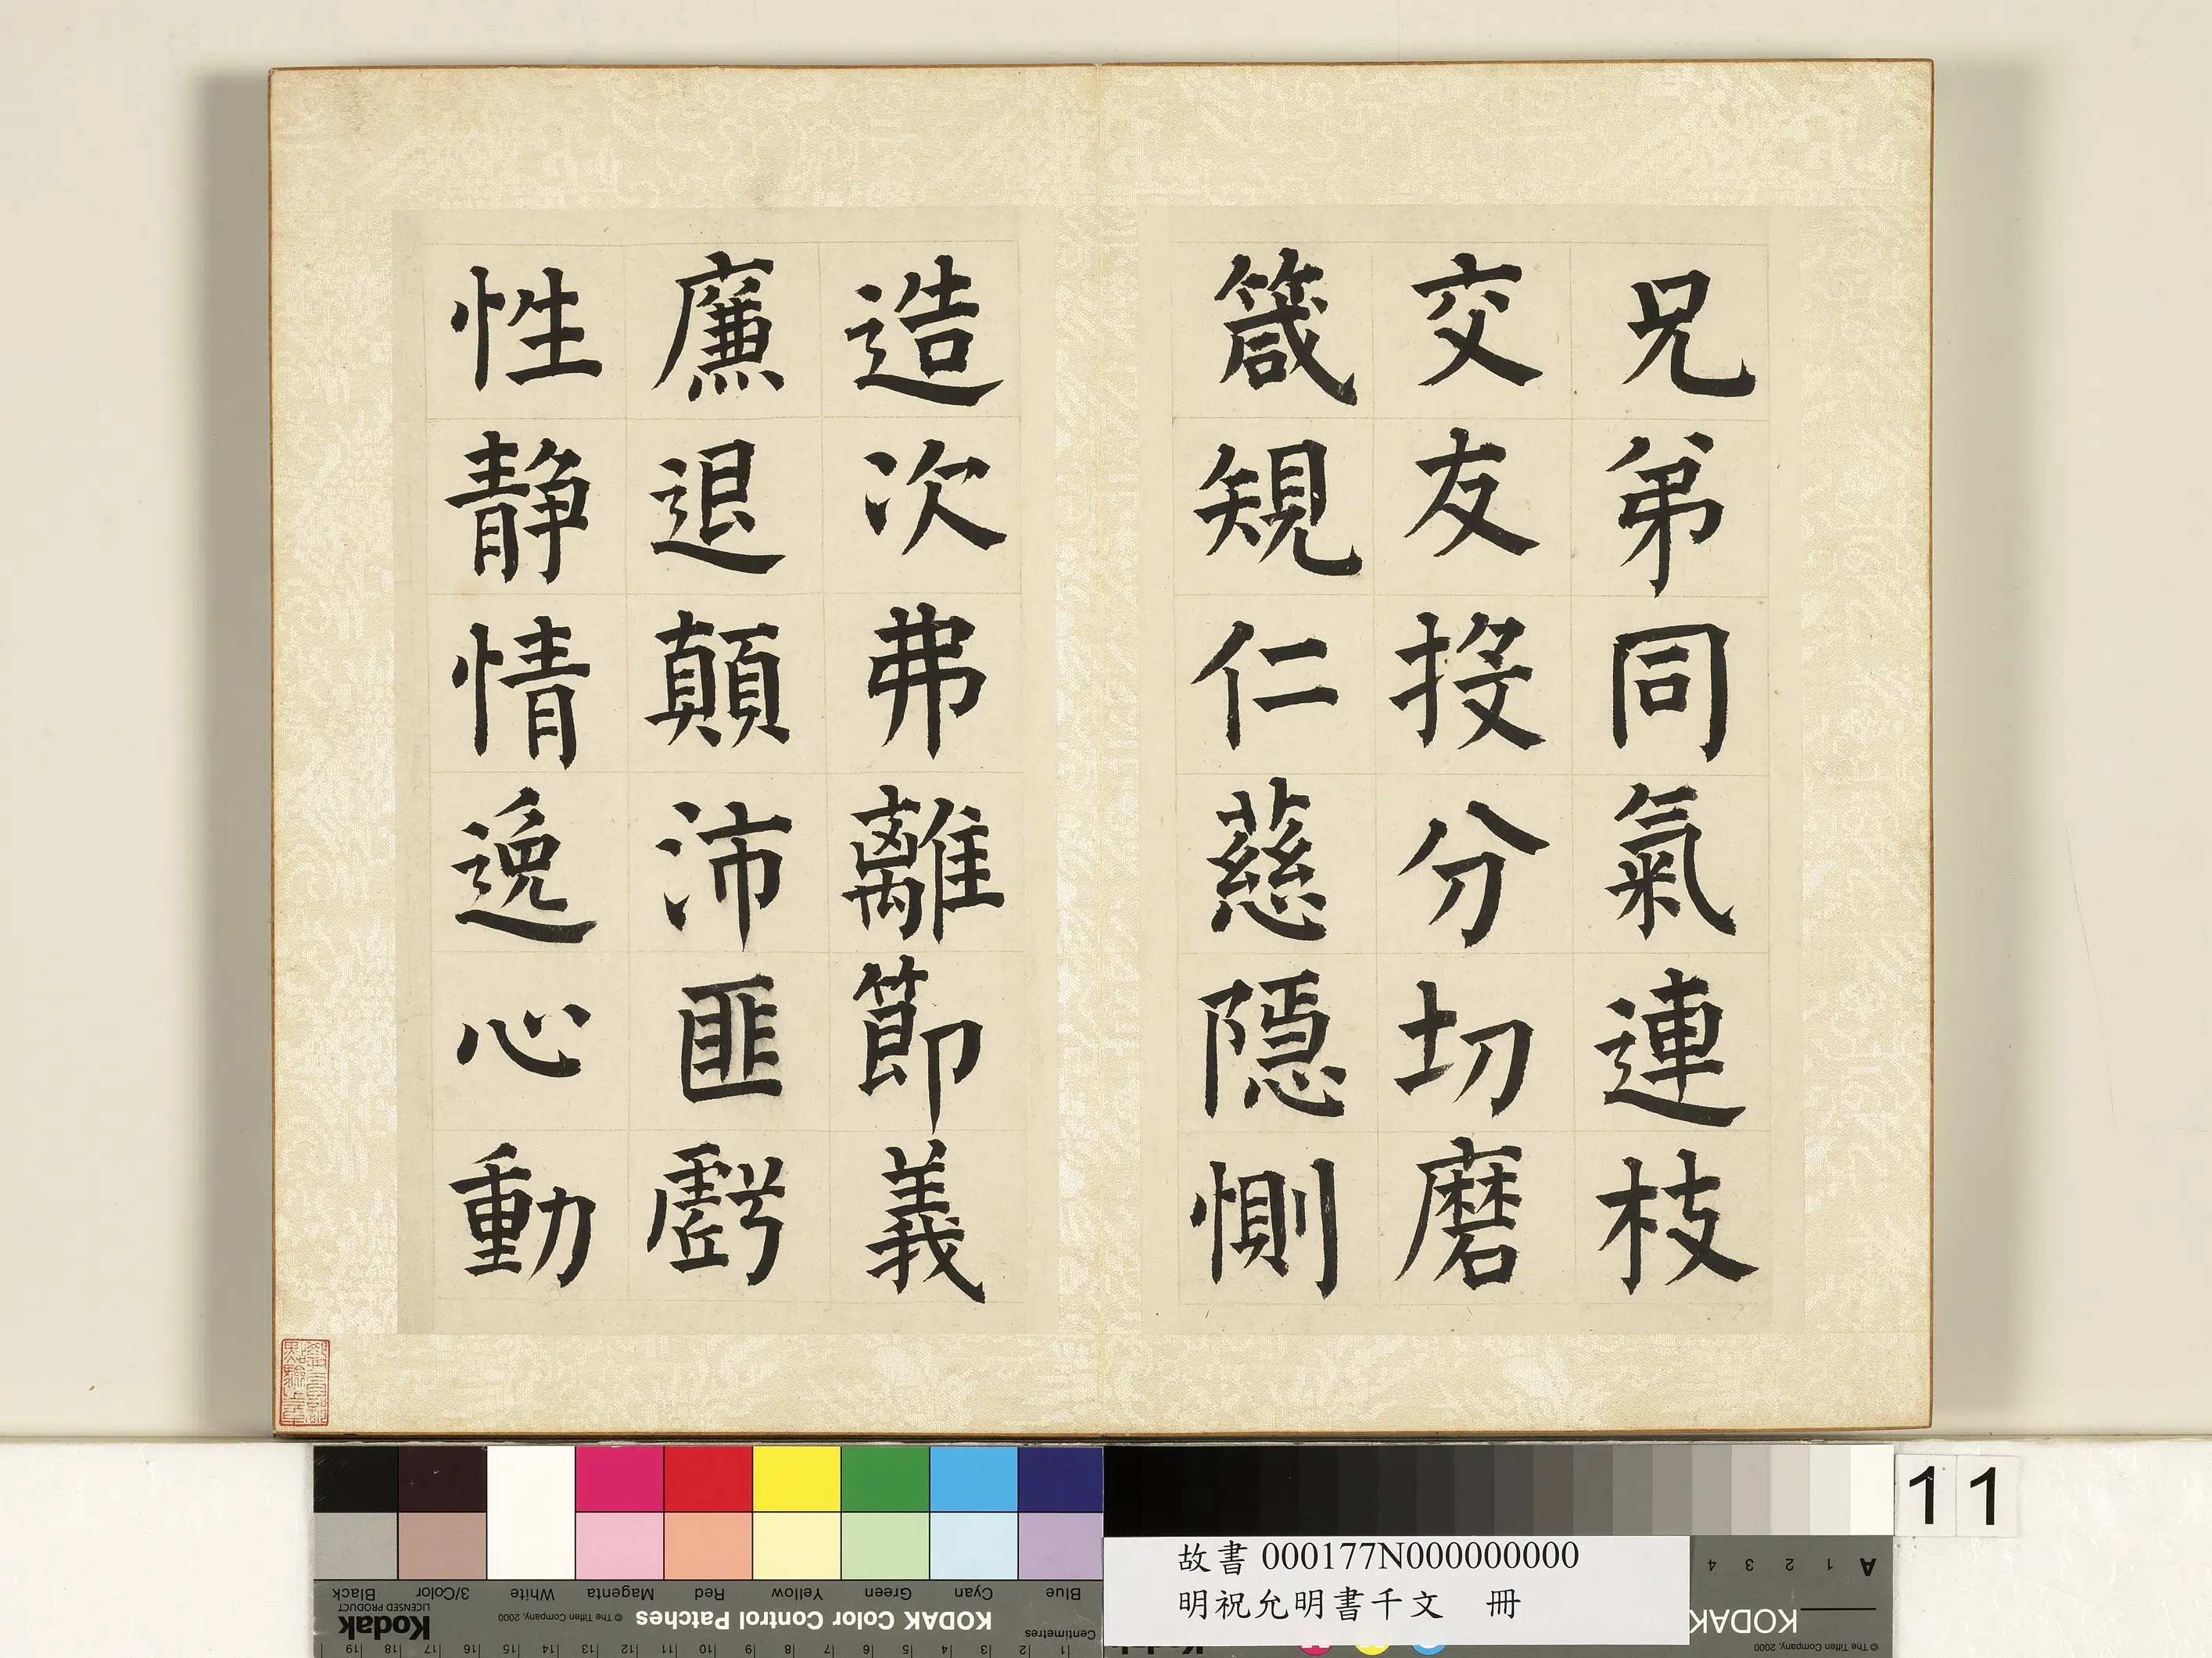 兄弟同氣連枝
交友投分切磨
箴規仁慈隱惻
造次弗離節義
廉退顛沛匪虧
性靜情逸心動
11
故書 000177N000000000
明祝允明書千文 冊
Black 3/Color White Magenta Red Yellow Green Cyan Blue
Kodak
LICENSED PRODUCT
© The Tiffen Company, 2000
KODAK Color Control Patches
Centimetres
1 2 3 4 5 6 7 8 9 10 11 12 13 14 15 16 17 18 19
A 1 2 3 4
KODAK
© The Tiffen Company, 2000